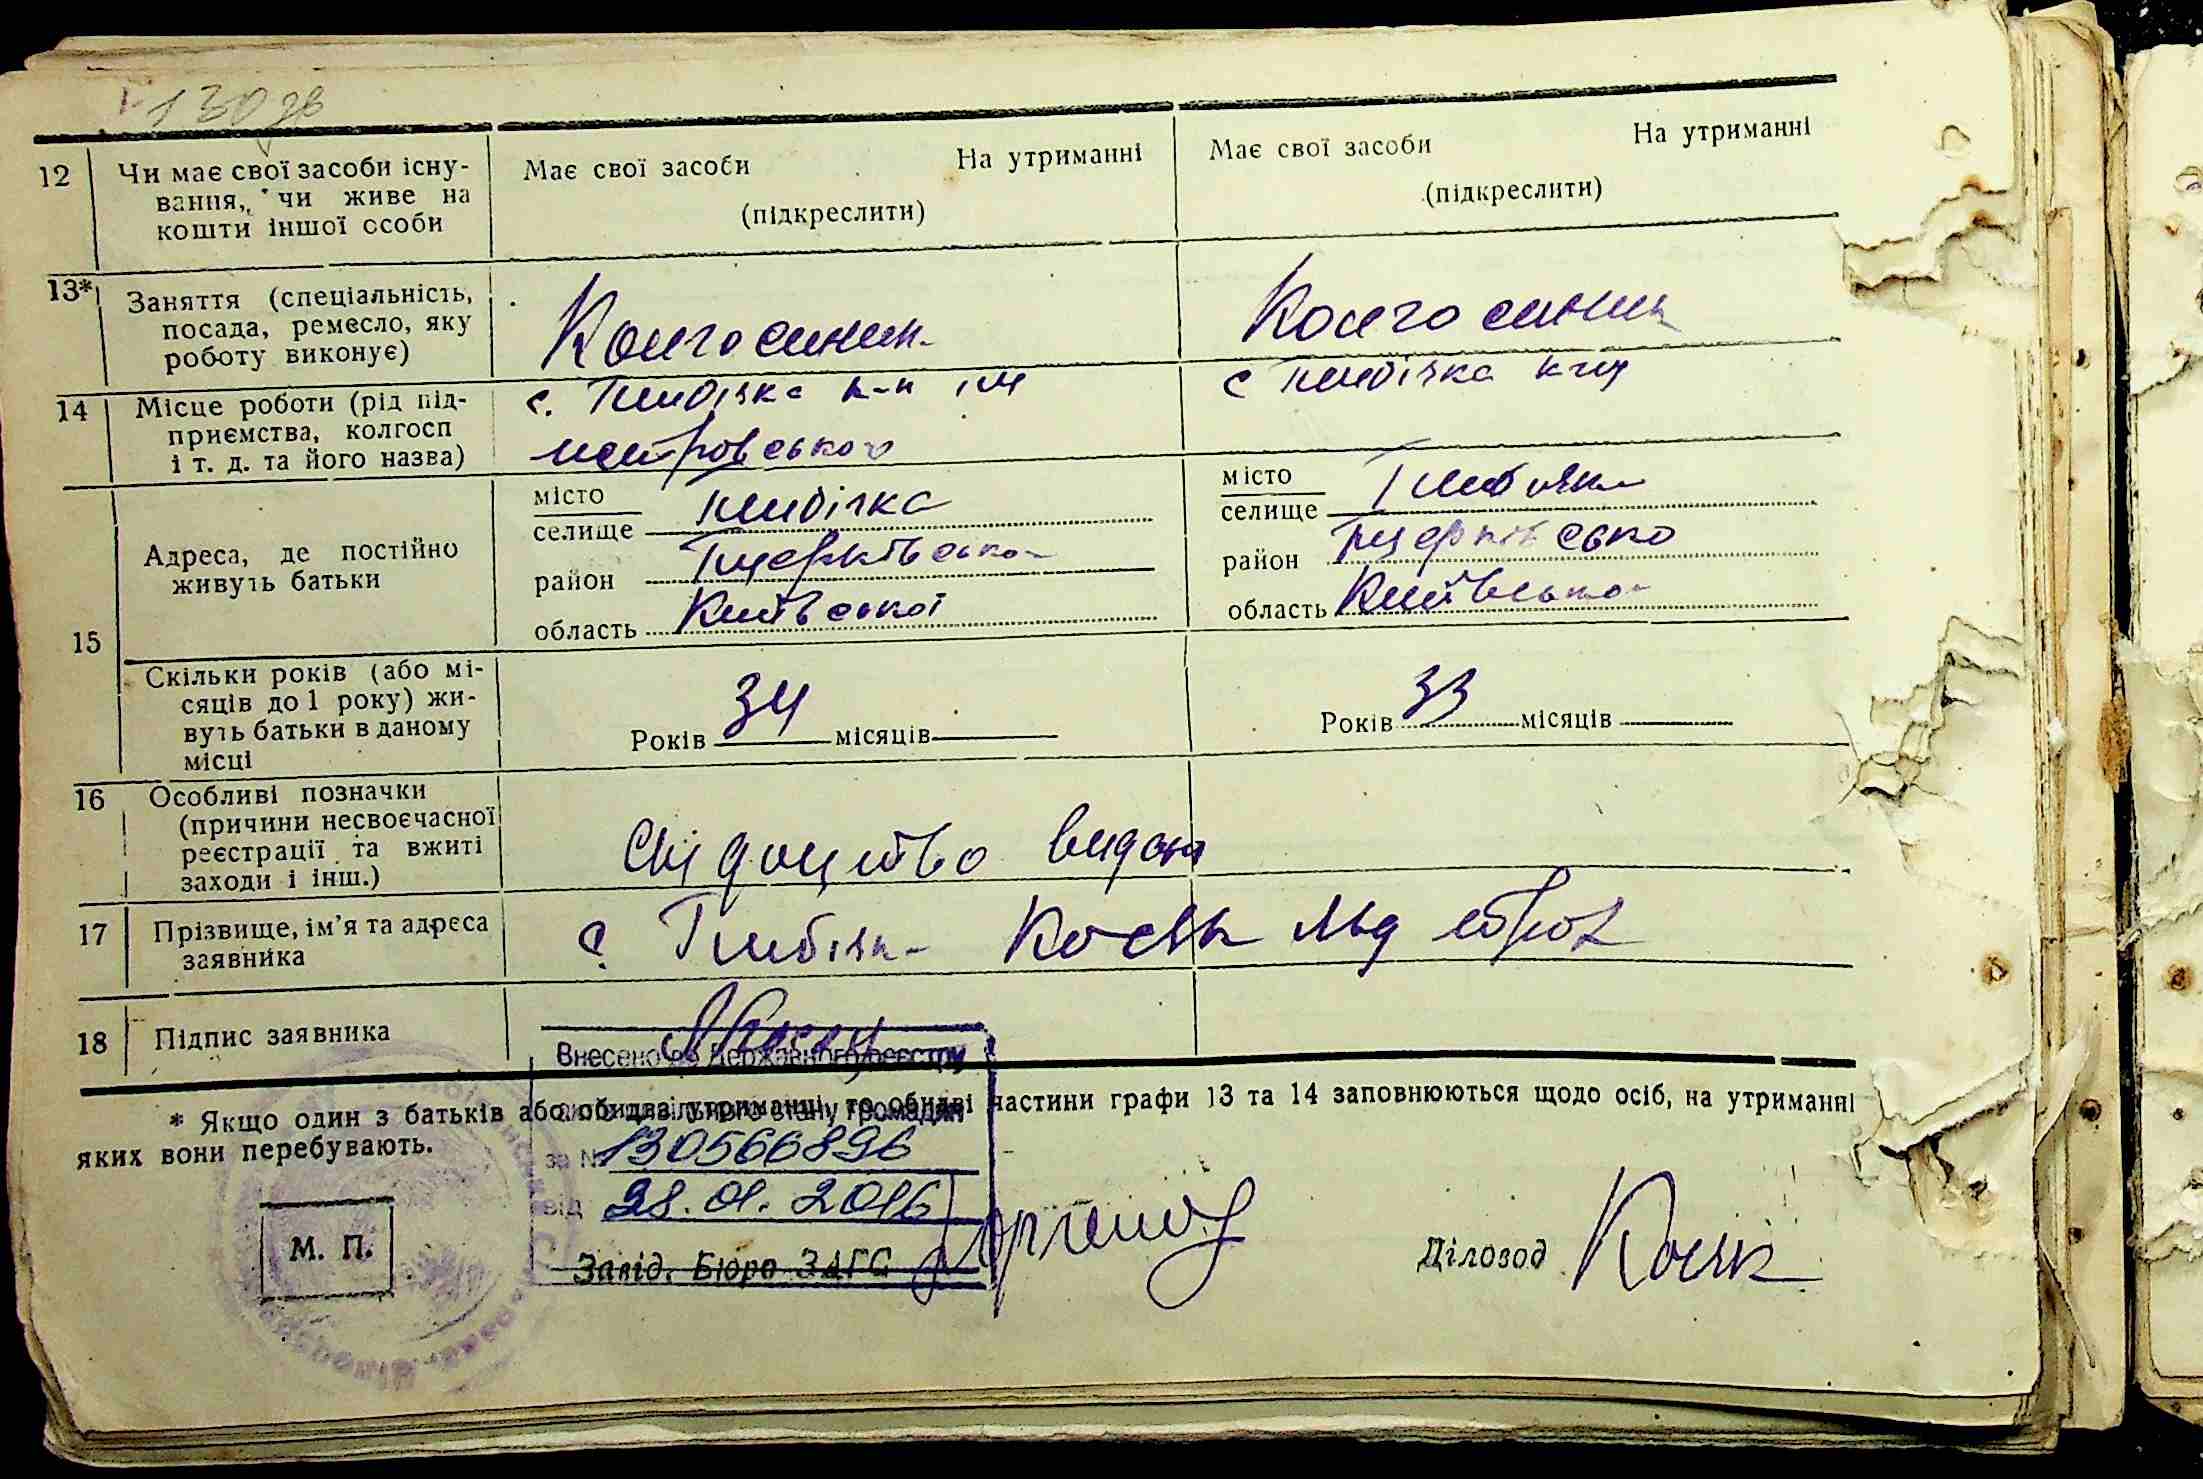 130 зв
12 Чи має свої засоби існу-
вання, чи живе на
кошти іншої особи
Має свої засоби На утриманні
(підкреслити)
Має свої засоби На утриманні
(підкреслити)
13* Заняття (спеціальність,
посада, ремесло, яку
роботу виконує)
Колгоспник
Колгоспник
14 Місце роботи (рід під-
приємства, колгосп
і т. д. та його назва)
с. к-п ім
Петровського
с
15 Адреса, де постійно
живуть батьки
місто
селище
район
область Київської
місто
селище
район
область Київсько
Скільки років (або мі-
сяців до 1 року) жи-
вуть батьки в даному
місці
Років 34 місяців
Років 33 місяців
16 Особливі позначки
(причини несвоєчасної
реєстрації та вжиті
заходи і інш.)
Свідоцтво видано
17 Прізвище, ім'я та адреса
заявника
с.
18 Підпис заявника
Внесено до Державного реєстру
актів цивільного стану громадян
за № 130566896
від 28.01.2016
* Якщо один з батьків або обидва на утриманні, то обидві частини графи 13 та 14 заповнюються щодо осіб, на утриманні
яких вони перебувають.
М. П.
Завід. Бюро ЗАГС
Діловод Косяк